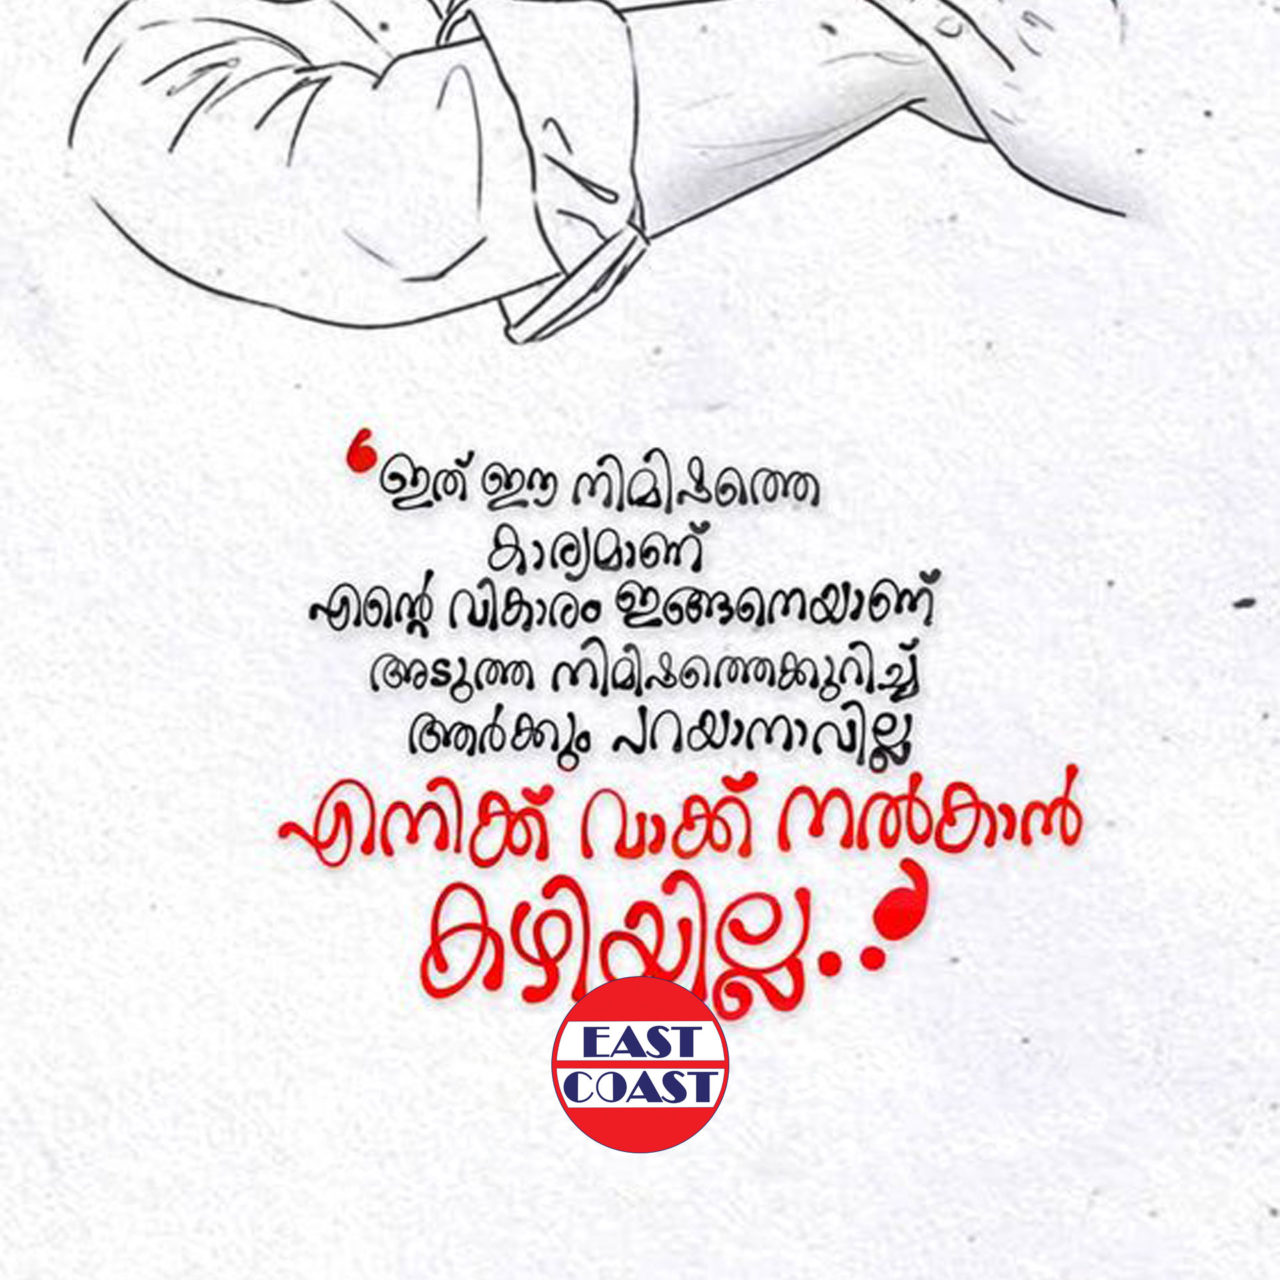 ‘ഇത് ഈ നിമിഷത്തെ
കാര്യമാണ്
എന്റെ വികാരം ഇങ്ങനെയാണ്
അടുത്ത നിമിഷത്തെക്കുറിച്ച്
ആർക്കും പറയാനാവില്ല
എനിക്ക് വാക്ക് നൽകാൻ
കഴിയില്ല..’
EAST
COAST